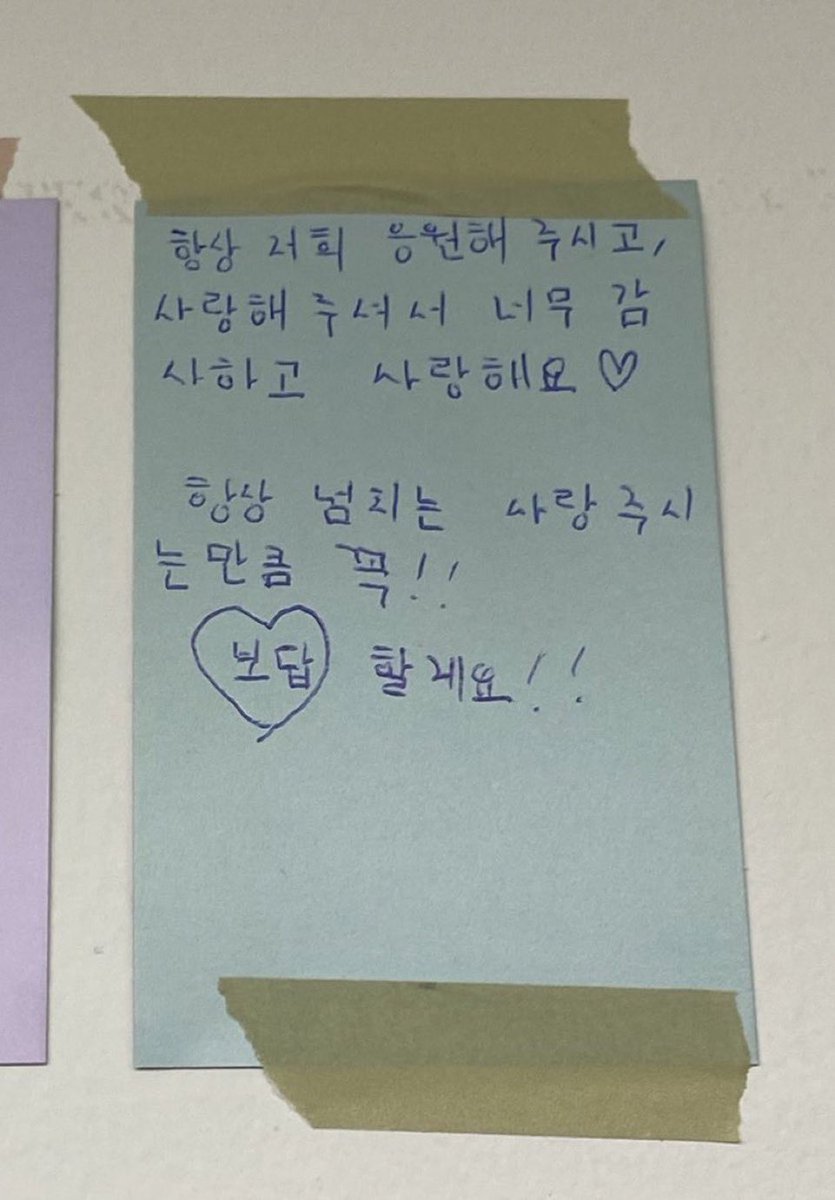 항상 저희 응원해 주시고,
사랑해 주셔서 너무 감
사하고 사랑해요♡
항상 넘치는 사랑 주시
는만큼 꼭!!
보답 할게요!!